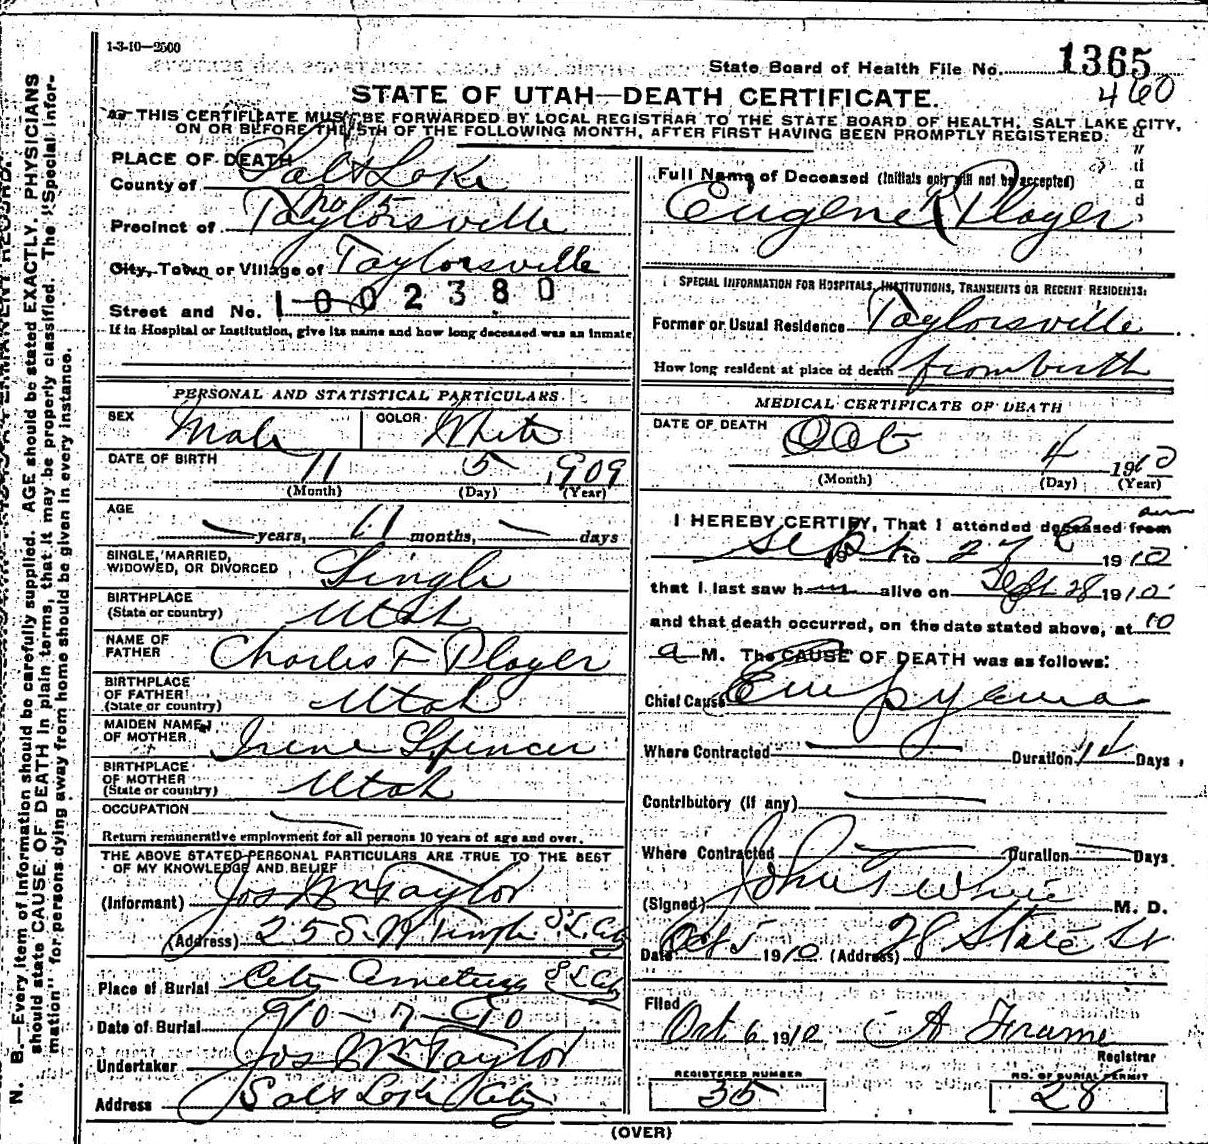 1-3-10—2500
State Board of Health File No. 1365
460
STATE OF UTAH—DEATH CERTIFICATE.
THIS CERTIFICATE MUST BE FORWARDED BY LOCAL REGISTRAR TO THE STATE BOARD OF HEALTH, SALT LAKE CITY,
ON OR BEFORE THE 5TH OF THE FOLLOWING MONTH, AFTER FIRST HAVING BEEN PROMPTLY REGISTERED.
PLACE OF DEATH
County of Salt Lake
No 5
Precinct of Taylorsville
City, Town or Village of Taylorsville
Street and No. 1002380
If in Hospital or Institution, give its name and how long deceased was an inmate
PERSONAL AND STATISTICAL PARTICULARS
SEX Male COLOR White
DATE OF BIRTH 11 5 1909
(Month) (Day) (Year)
AGE
years, 11 months, days
SINGLE, MARRIED,
WIDOWED, OR DIVORCED Single
BIRTHPLACE
(State or country) Utah
NAME OF
FATHER Charles F Player
BIRTHPLACE
OF FATHER
(State or country) Utah
MAIDEN NAME
OF MOTHER Irene Spencer
BIRTHPLACE
OF MOTHER
(State or country) Utah
OCCUPATION
Return remunerative employment for all persons 10 years of age and over.
THE ABOVE STATED PERSONAL PARTICULARS ARE TRUE TO THE BEST
OF MY KNOWLEDGE AND BELIEF
(Informant) Jos Wm Taylor
(Address) 25 S. W Temple S. L. City
Place of Burial City Cemetery S L City
Date of Burial 10-7-10
Undertaker Jos Wm Taylor
Address Salt Lake City
Full Name of Deceased (Initials only will not be accepted)
Eugene R Player
SPECIAL INFORMATION FOR HOSPITALS, INSTITUTIONS, TRANSIENTS OR RECENT RESIDENTS:
Former or Usual Residence Taylorsville
How long resident at place of death from birth
MEDICAL CERTIFICATE OF DEATH
DATE OF DEATH Oct 4 1910
(Month) (Day) (Year)
I HEREBY CERTIFY, That I attended deceased from
Sept 19 to 27 1910
that I last saw h alive on Sept 28 1910
and that death occurred, on the date stated above, at 10
a M. The CAUSE OF DEATH was as follows:
Chief Cause Empyema
Where Contracted Duration Days
Contributory (if any)
Where Contracted Duration Days
(Signed) John T White M. D.
Date Oct 5 1910 (Address) 28 State St
Filed
Oct 6 1910 A Frame
Registrar
REGISTERED NUMBER
35
NO. OF BURIAL PERMIT
28
(OVER)
N. B.—Every item of information should be carefully supplied. AGE should be stated EXACTLY. PHYSICIANS
should state CAUSE OF DEATH in plain terms, that it may be properly classified. The "Special Infor-
mation" for persons dying away from home should be given in every instance.